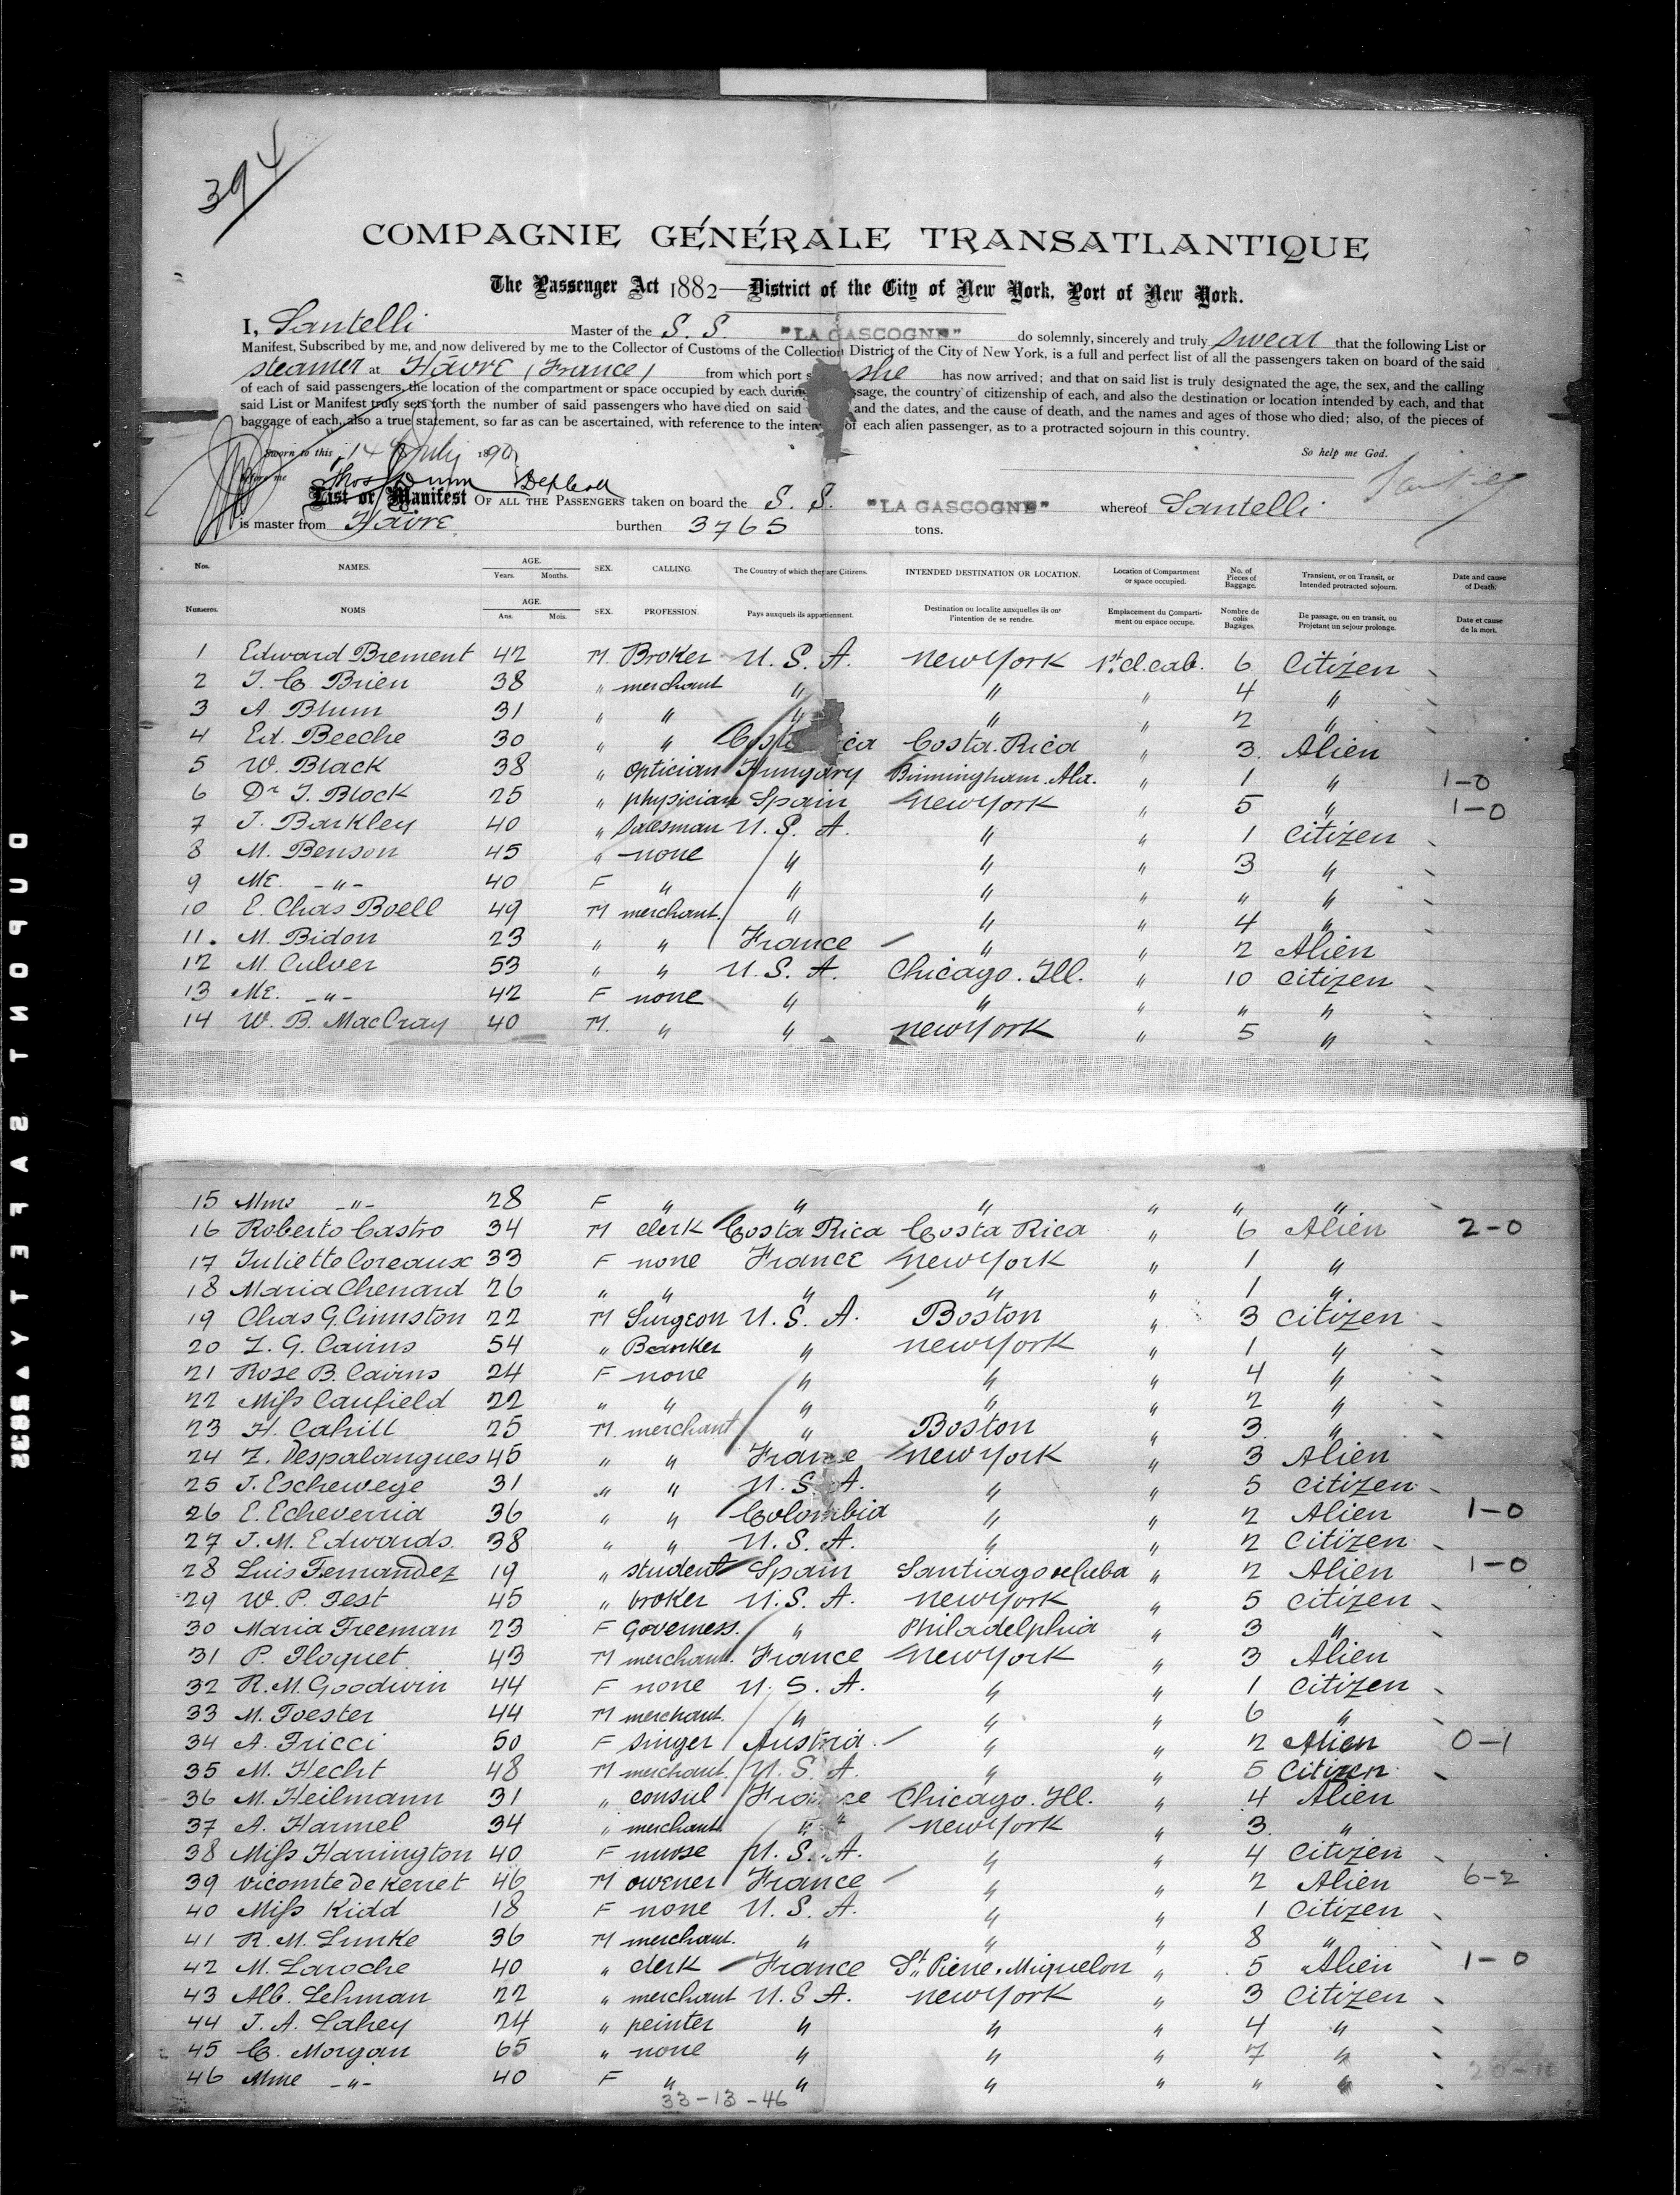 394
COMPAGNIE GÉNÉRALE TRANSATLANTIQUE
The Passenger Act 1882—District of the City of New York, Port of New York.
I, Santelli Master of the S. S. "LA GASCOGNE" do solemnly, sincerely and truly swear that the following List or
Manifest, Subscribed by me, and now delivered by me to the Collector of Customs of the Collection District of the City of New York, is a full and perfect list of all the passengers taken on board of the said
steamer at Hâvre (France) from which port she has now arrived; and that on said list is truly designated the age, the sex, and the calling
of each of said passengers, the location of the compartment or space occupied by each during ssage, the country of citizenship of each, and also the destination or location intended by each, and that
said List or Manifest truly sets forth the number of said passengers who have died on said and the dates, and the cause of death, and the names and ages of those who died; also, of the pieces of
baggage of each, also a true statement, so far as can be ascertained, with reference to the inten of each alien passenger, as to a protracted sojourn in this country.
Sworn to this 14 July 1890 So help me God.
before me Thos Dunn Dep Coll
List or Manifest OF ALL THE PASSENGERS taken on board the S. S. "LA GASCOGNE" whereof Santelli
is master from Hâvre burthen 3765 tons.
Nos. NAMES. AGE. Years. Months. SEX. CALLING. The Country of which they are Citizens. INTENDED DESTINATION OR LOCATION. Location of Compartment or space occupied. No. of Pieces of Baggage. Transient, or on Transit, or Intended protracted sojourn. Date and cause of Death.
Numeros. NOMS AGE. Ans. Mois. SEX. PROFESSION. Pays auxquels ils appartiennent. Destination ou localite auxquelles ils ont l'intention de se rendre. Emplacement du Comparti-ment ou espace occupe. Nombre de colis Bagages. De passage, ou en transit, ou Projetant un sejour prolonge. Date et cause de la mort.
1 Edward Brement 42 M. Broker U. S. A. New York 1st cl. cab. 6 Citizen
2 J. C. Brien 38 " merchant " " " 4 "
3 A. Blum 31 " " " " " 2 "
4 Ed. Beeche 30 " " Cost ica Costa. Rica " 3. Alien
5 W. Black 38 " optician Hungary Birmingham. Ala. " 1 " 1-0
6 Dr J. Block 25 " physician Spain New York " 5 " 1-0
7 J. Barkley 40 " Salesman U. S. A. " " 1 Citizen
8 M. Benson 45 " none " " " 3 "
9 ME. -"- 40 F " " " " " "
10 E. Chas Boell 49 M merchant. " " " 4 "
11. M. Bidon 23 " " France " " 2 Alien
12 M. Culver 53 " " U. S. A. Chicago. Ill. " 10 Citizen
13 ME. -"- 42 F none " " " " "
14 W. B. MacCray 40 M. " " New York " 5 "
15 Mme -"- 28 F " " " " " "
16 Roberto Castro 34 M clerk Costa Rica Costa Rica " 6 Alien 2-0
17 Juliette Coreaux 33 F none France New York " 1 "
18 Maria Chenard 26 " " " " " 1 "
19 Chas G. Cumston 22 M Surgeon U. S. A. Boston " 3 Citizen
20 Z. G. Cairns 54 " Banker " New York " 1 "
21 Rose B. Cairns 24 F none " " " 4 "
22 Miss Caufield 22 " " " " " 2 "
23 H. Cahill 25 M. merchant " Boston " 3. "
24 Z. Despalangues 45 " " France New York " 3 Alien
25 J. Eschewege 31 " " U. S. A. " " 5 Citizen
26 E. Echeverria 36 " " Colombia " " 2 Alien 1-0
27 J. M. Edwards. 38 " " U. S. A. " " 2 Citizen
28 Luis Fernandez 19 " student Spain Santiago de Cuba " 2 Alien 1-0
29 W. P. Fest 45 " broker U. S. A. New York " 5 Citizen
30 Maria Freeman 23 F Governess. " Philadelphia " 3 "
31 P. Floquet. 43 M merchant. France New York " 3 Alien
32 R. M. Goodwin 44 F none U. S. A. " " 1 Citizen
33 M. Foester 44 M merchant. " " " 6 "
34 A. Fricci 50 F singer Austria. " " 2 Alien 0-1
35 M. Hecht 48 M merchant. U. S. A. " " 5 Citizen
36 M. Heilmann 31 " consul France Chicago. Ill. " 4 Alien
37 A. Harmel 34 " merchant. " New York " 3. "
38 Miss Harrington 40 F nurse U. S. A. " " 4 Citizen
39 Vicomte De Kerret 46 M owener France " " 2 Alien 6-2
40 Miss Kidd 18 F none U. S. A. " " 1 Citizen
41 R. M. Lunke 36 M merchant. " " " 8 "
42 M. Laroche 40 " clerk France St. Pierre. Miquelon " 5 Alien 1-0
43 Alb. Lehman 22 " merchant U. S A. New York " 3 Citizen
44 J. A. Lahey 24 " peinter " " " 4 "
45 C. Morgan 65 " none " " " 7 "
46 Mme -"- 40 F " " " " " " 20-10
33-13-46
DUPONT SAFETY